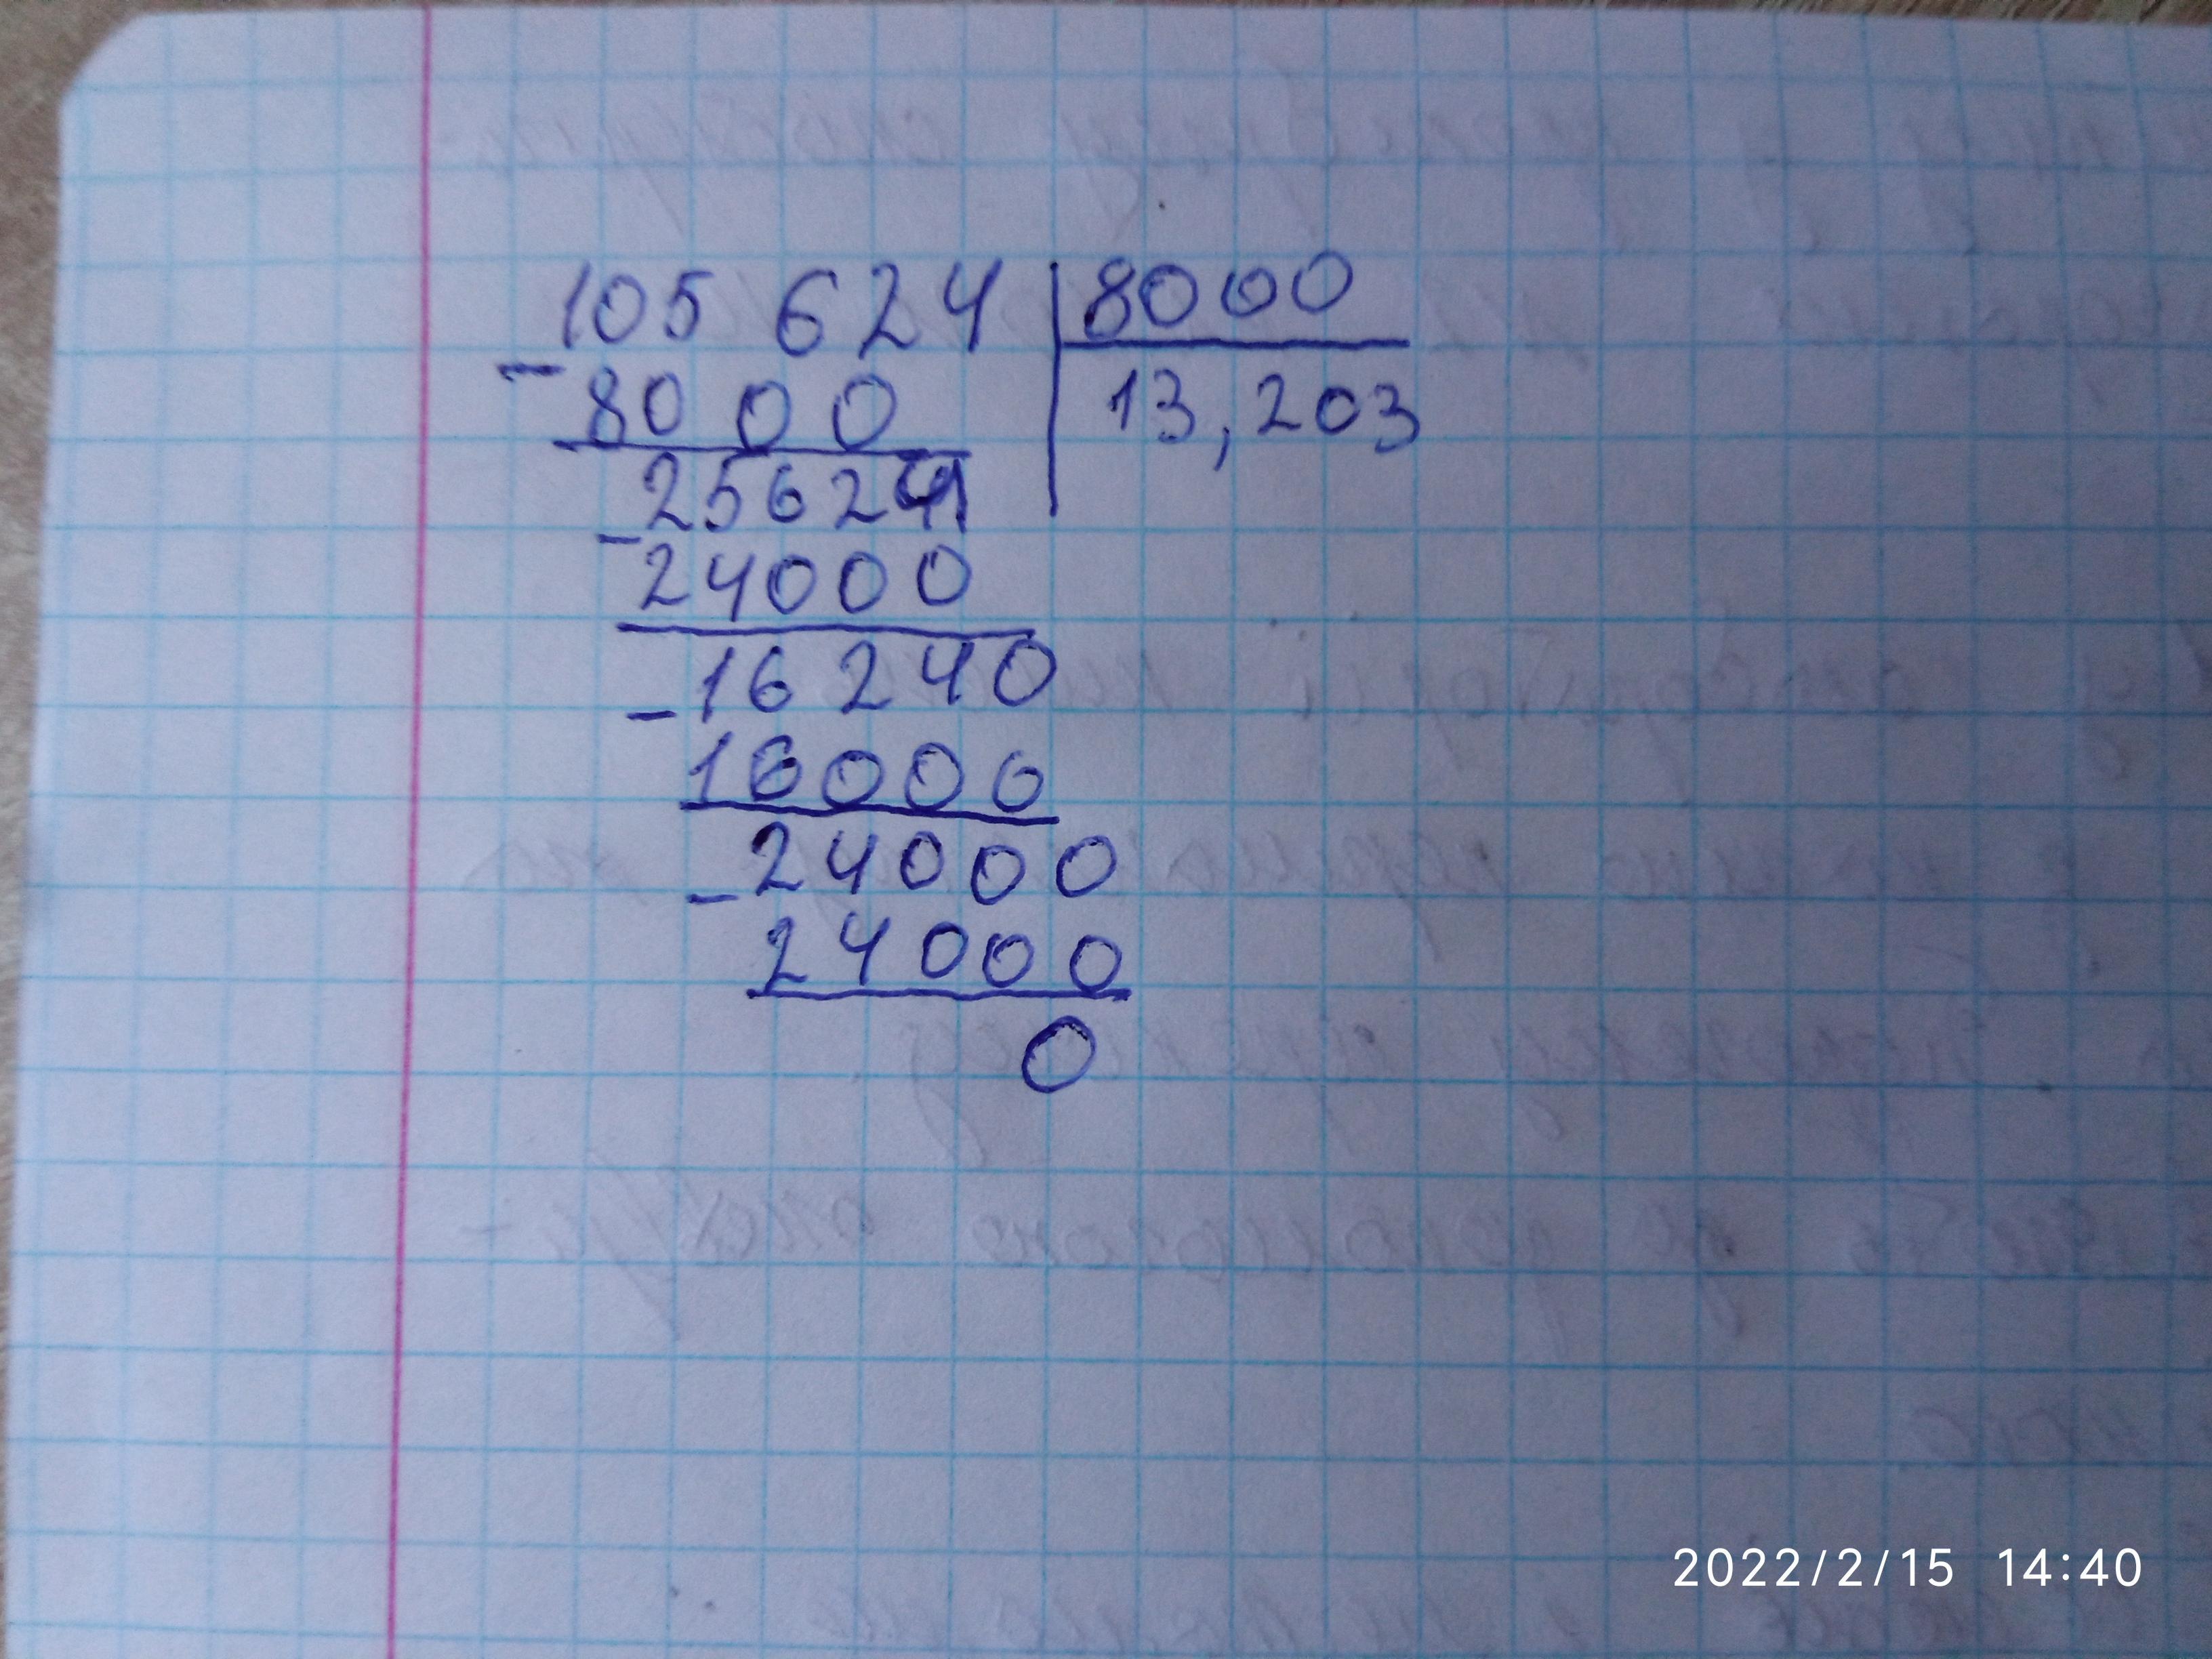 105 624 8000
- 8000 13,203
25624
- 24000
16240
- 16000
24000
- 24000
0
2022/2/15 14:40